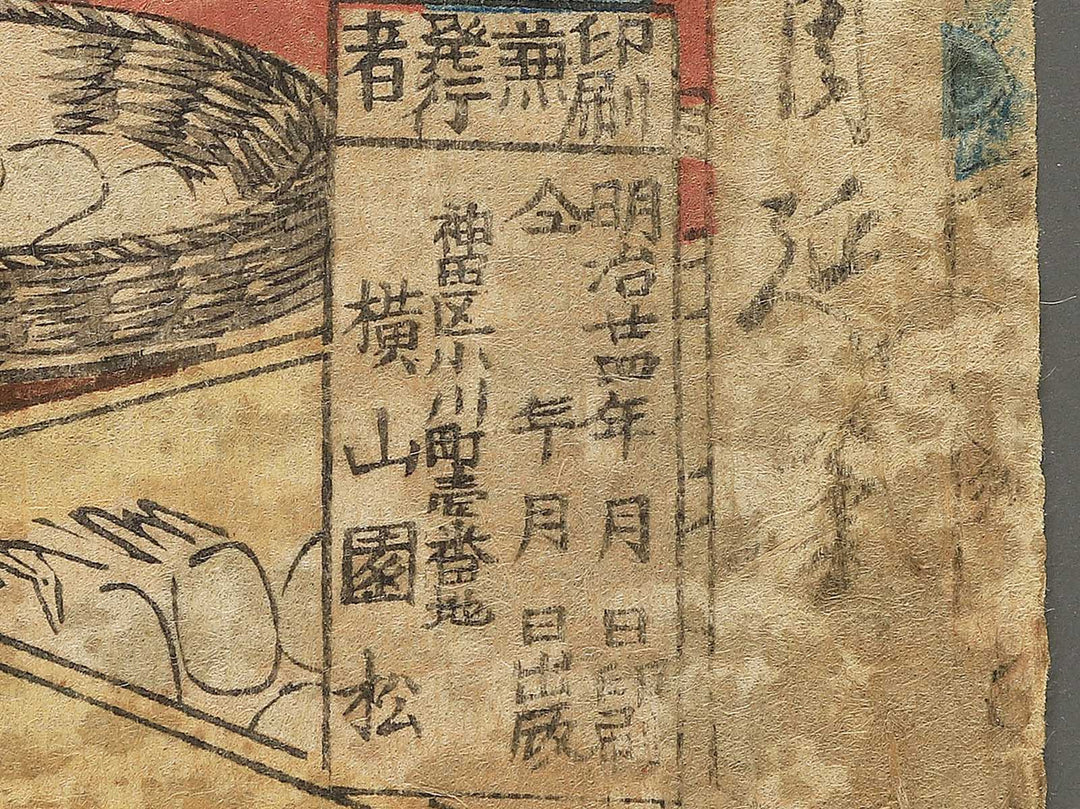 印刷
兼
發行
者
明治廿四年 月 日印刷
仝 年 月 日出版
神田区小川町壱番地
横山園松